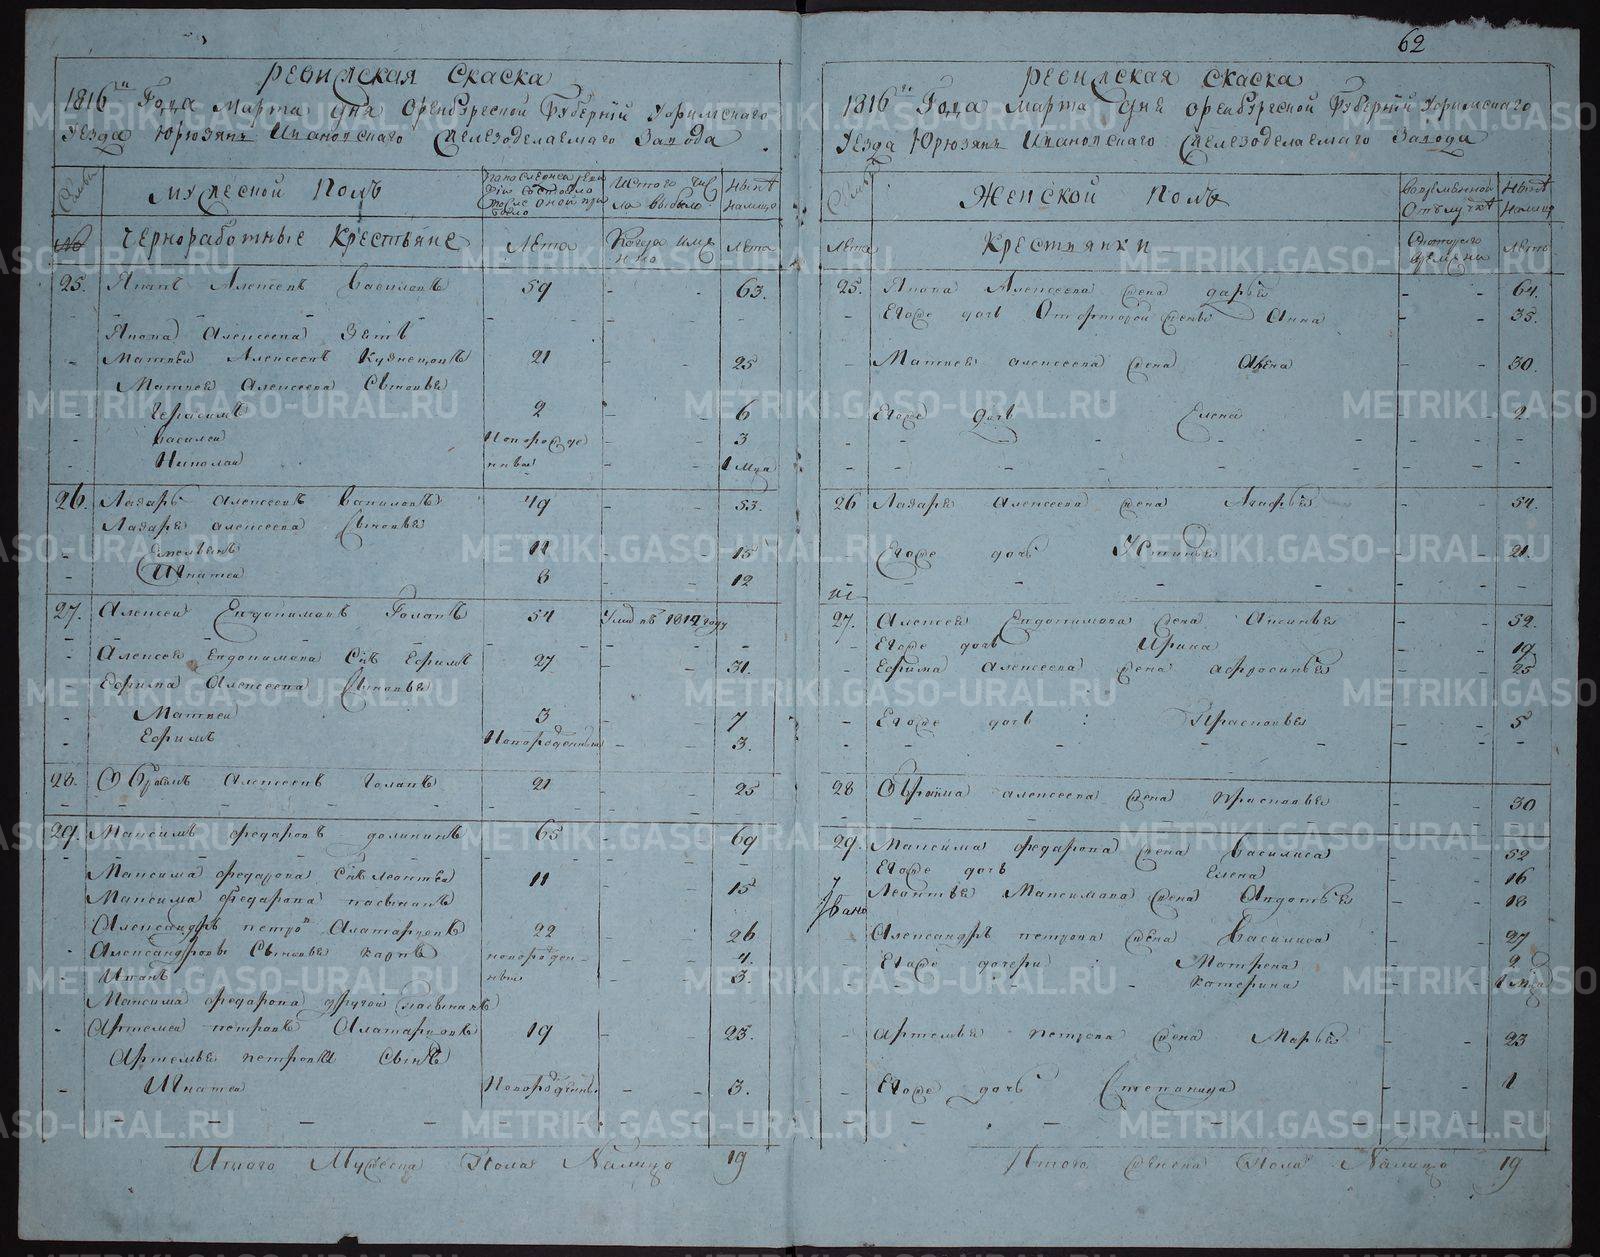 62
РЕВИЖСКАЯ СКАСКА
1816го Года Марта дня Оренбургской Губернии Уфимского
Уезда Юрюзянь Ивановскаго Железоделаемаго Завода
Семьи
МУЖЕСКОЙ ПОЛЪ
Из того чис
ла выбыло
ныне
налицо
№
Чернорабочные Крестьяне
Лета
Когда имя
нно
Лета
25. Яковъ Алексеевъ 59 - - 63.
Якова Алексеева Зять
Матвеи Алексеевъ Кузнецовъ 21 - - 25
Матвея Алексеева Сыновья
Герасимъ 2 - - 6
Василеи Новорожде - - 3
Николаи нныи - - 1 Мца
26. Лазарь Алексеевъ 49 - - 53.
Лазаря Алексеева Сыновья
Емельянъ 11 - - 15
Игнатеи 8 - - 12
27. Алексеи Евдокимовъ Головъ 54 Умре въ 1812 году
Алексея Евдокимова Сынъ Ефимъ 27 - - 31.
Ефима Алексеева Сыновья
Матвеи 3 - - 7
Ефимъ Новорожденныи - - 3.
28. Алексеевъ Головъ 21 - - 25
29. Максимъ Федоровъ 65 - - 69
Максима Федорова Сынъ Леонтеи 11 - - 15
Максима Федорова пасынокъ
Александръ Петровъ 22 - - 26
Александровы Сыновья Карпъ новорожден- - - 4.
Иванъ ныи - - 3.
Максима Федорова другой пасынокъ
Артемеи Петровъ 19 - - 23.
Артемья Петрова Сынъ
Игнатеи Новорожденны - - 3.
Итого Мужеска Пола Налицо 19
РЕВИЖСКАЯ СКАСКА
1816го Года Марта дня Оренбургской Губернии Уфимского
Уезда Юрюзянь Ивановскаго Железоделаемаго Завода
Семьи
ЖЕНСКОЙ ПОЛЪ
Во временной
Отлучке
Ныне
налицо
Лета
Крестьянки
Скоторого
времяни
Лета
25. Якова Алексеева жена Дарья - - 64.
Егоже дочь От второй жены Анна - - 35.
Матвея Алексеева жена - - 30.
Егоже дочь Елена - - 2.
26 Лазаря Алексеева жена Агафья - - 54.
Егоже дочь Устинья - - 21.
27. Алексея Евдокимова жена Аксинья - - 52.
Егоже дочь Ирина - - 19
Ефима Алексеева жена Афросинья - - 25
Егоже дочь Прасковья - - 5
28 Алексеева жена Прасковья - - 30
29. Максима Федорова жена Василиса - - 52
Егоже дочь Елена - - 16
Леонтья Максимова жена Авдотья - - 18
Александръ Петрова жена Василиса - - 27
Егоже дочери Матрена - - 2
Катерина - - 1 Мца
Артемья Петрова жена Марья - - 23
Егоже дочь Степанида - - 1
Итого Женска Пола Налицо 19
METRIKI.GASO-URAL.RU